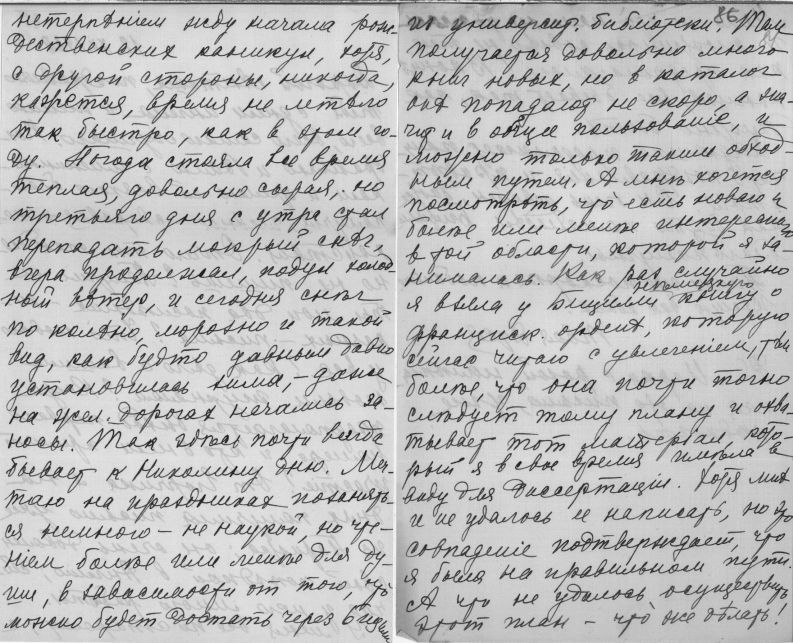 нетерпѣніем жду начала рож-
дественских каникул, хотя,
с другой стороны, никогда,
кажется, время не летѣло
так быстро, как в этом го-
ду. Погода стояла все время
теплая, довольно сырая, но
третьяго дня с утра стал
перепадать мокрый снѣг,
вчера продолжал, подул холод-
ный вѣтер, и сегодня снѣг
по колѣно, морозно и такой
вид, как будто давным давно
установилась зима, – даже
на жел. дорогах начались за-
носы. Так здѣсь почти всегда
бывает к Николину дню. Меч-
таю на праздниках позанять-
ся немного – не наукой, но чте-
ніем болѣе или менѣе для ду-
ши, в зависимости от того, что
можно будет достать через Бицилли
86
из университ. библіотеки. Там
получается довольно много
книг новых, но в каталог
онѣ попадают не скоро, а зна-
чит и в общее пользованіе, и
можно только таким обход-
ным путем. А мнѣ хочется
посмотрѣть, что есть новаго и
болѣе или менѣе интереснаго
в той области, которой я за-
нималась. Как раз случайно
я взяла у Бицилли нѣмецкую книгу о
францискк. орденѣ, которую
сейчас читаю с увлеченіем, тѣм
болѣе, что она почти точно
слѣдует тому плану и охва-
тывает тот матеріал, кото-
рый я в свое время имѣла в
виду для диссертаціи. Хотя мнѣ
и не удалось ее написать, но это
совпаденіе подтверждает, что
я была на правильном пути.
А что не удалось осуществить
этот план – что же дѣлать!